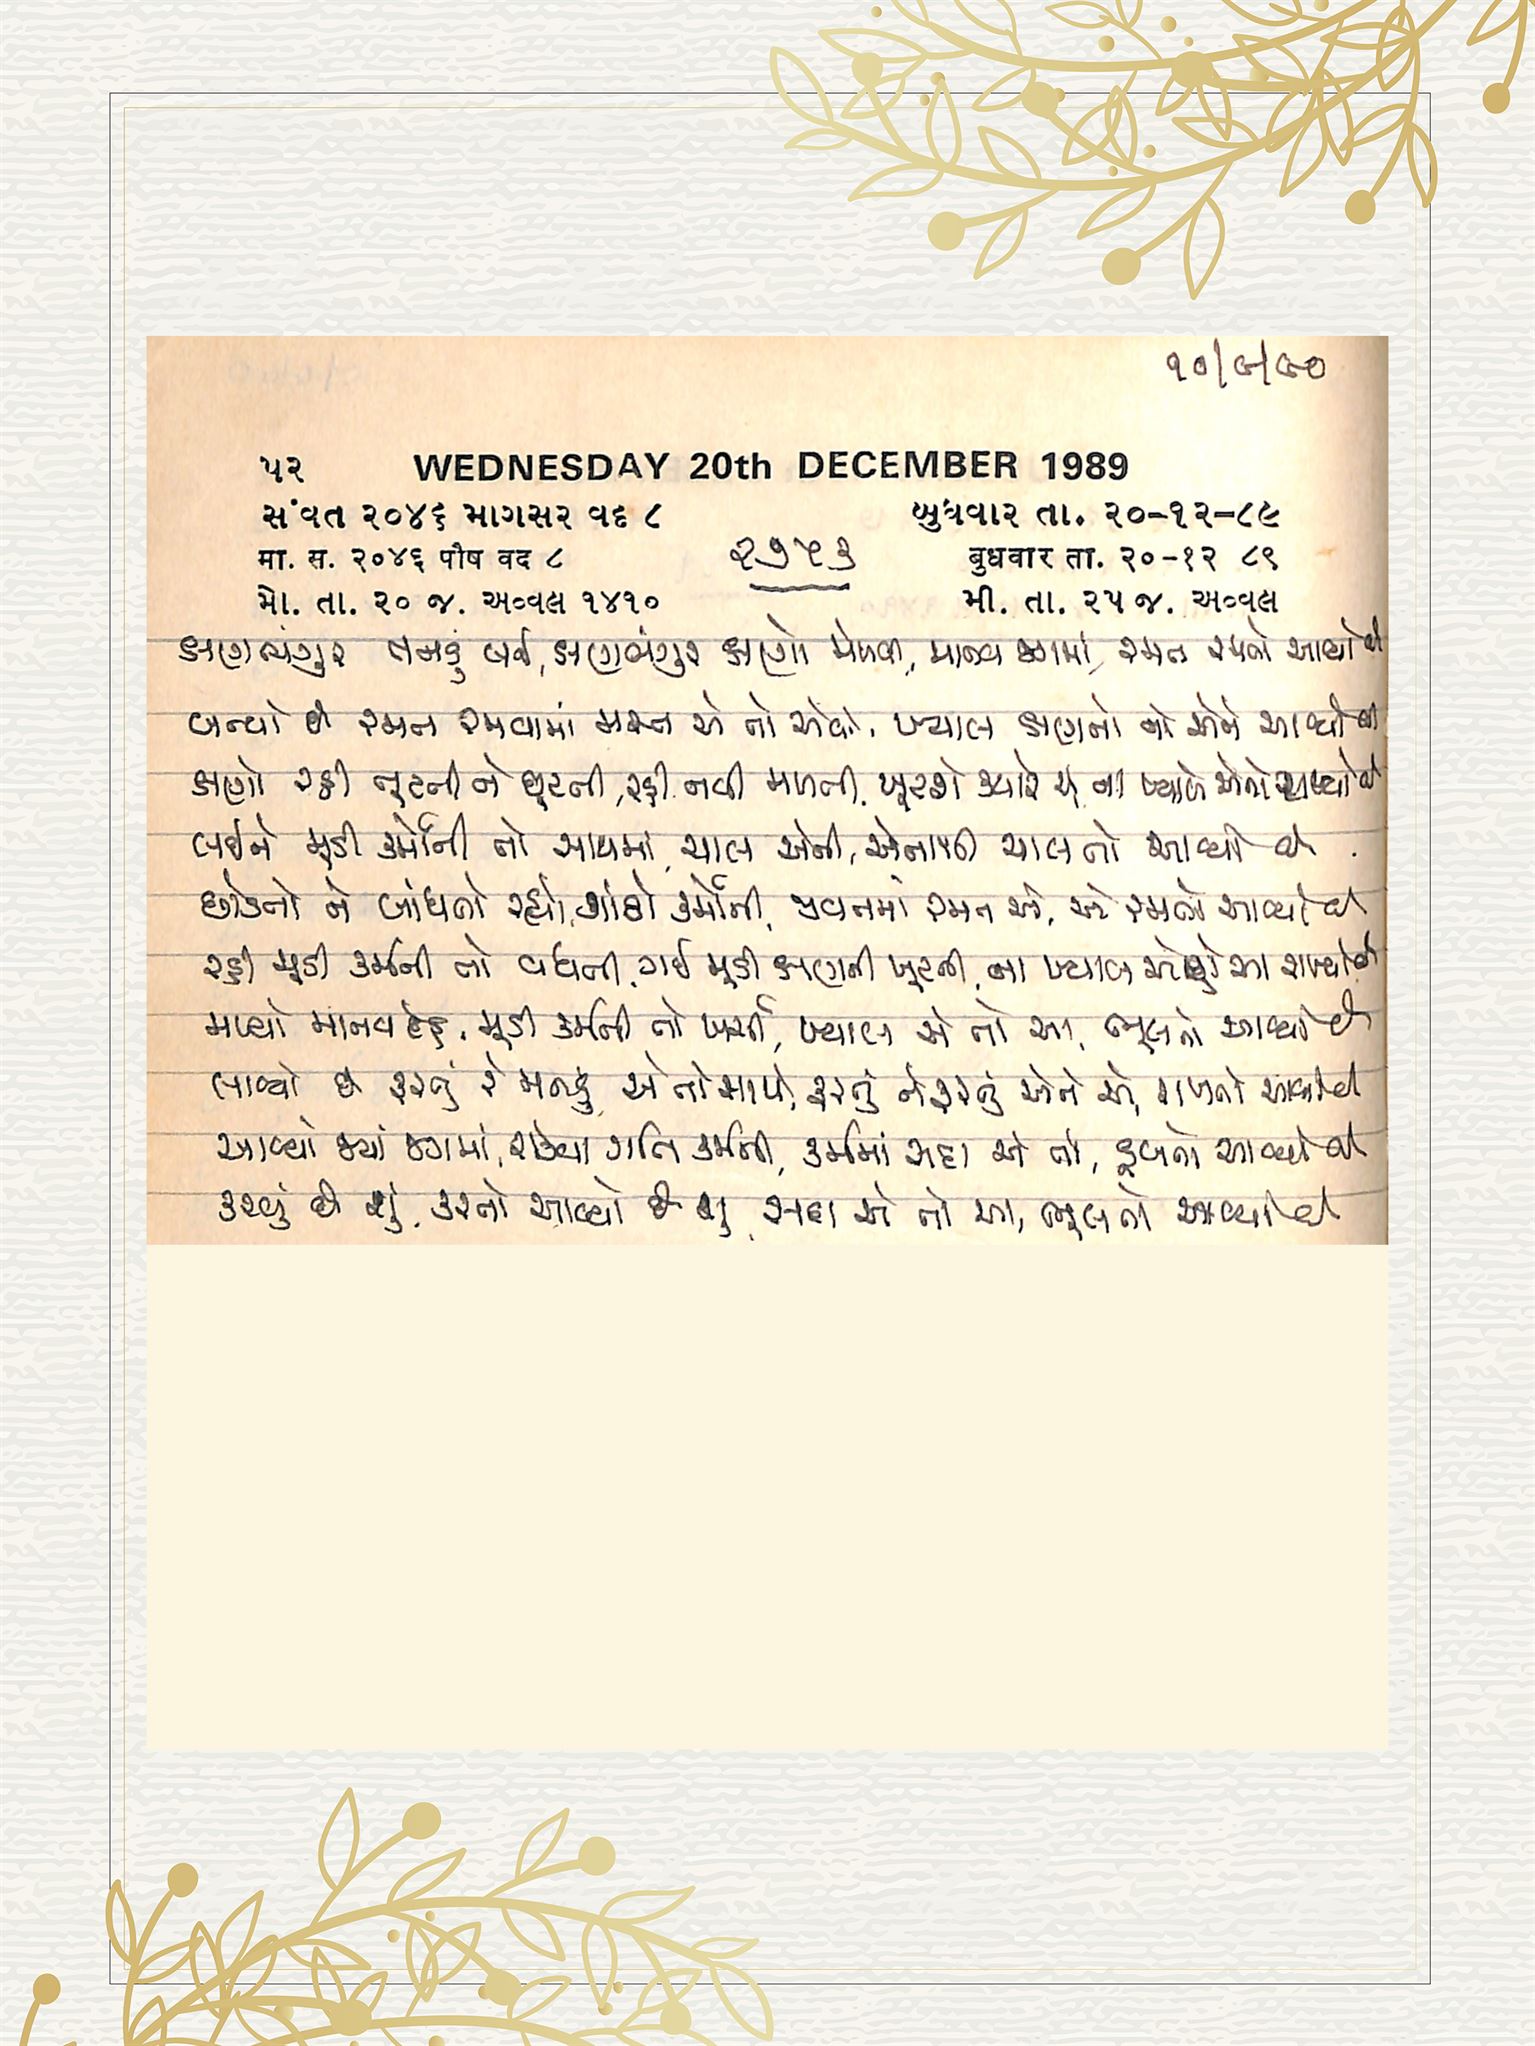 ૧૦/૯/૯૦
૫૨ WEDNESDAY 20th DECEMBER 1989
સંવત ૨૦૪૬ માગસર વદ ૮ બુધવાર તા. ૨૦-૧૨-૮૯
मा. स. २०४६ पौष वद ८ बुधवार ता. २०-१२ ८९
મો. તા. ૨૦ જ. અવ્વલ ૧૪૧૦ મી. તા. ૨૫ જ. અવ્વલ
૨૭૫૩
ક્ષણભંગુર તનડું લઈ, ક્ષણભંગુર ક્ષણો મેળવી, માનવ જગમાં, રમત રમતો આવ્યો છે
બન્યો છે રમત રમવામાં મસ્ત એ તો એવો, ખ્યાલ ક્ષણનો ના એને આવ્યો છે
ક્ષણો રહી તૂટતી ને છૂટતી, રહી નવી મળતી, ખૂટશે ક્યારે એ, ના ખ્યાલ એનો રાખ્યો છે
લઈને મૂડી કર્મોની તો સાથમાં, ચાલ એની, એનાથી ચાલતો આવ્યો છે
છોડતો ને બાંધતો રહ્યો, ગાંઠો કર્મોની, જીવનમાં રમત એ, એ રમતો આવ્યો છે
રહી મૂડી કર્મની તો વધતી, ગઈ મૂડી ક્ષણની ખૂટતી, ના ખ્યાલ આ રાખ્યો છે
મળ્યો માનવ દેહ, મૂડી કર્મની તો ખર્ચી, ખ્યાલ એ તો આ, ભૂલતો આવ્યો છે
લાવ્યો છે ફરતું રે મનડું, એ તો સાથે, ફરતું ને ફરતું એને એ, રાખતો આવ્યો છે
આવ્યો જ્યાં જગમાં, ગતિ કર્મની, કર્મમાં સદા એ તો, ડૂબતો આવ્યો છે
કરવું છે શું, કરતો આવ્યો છે શું, સદા એ તો આ, ભૂલતો આવ્યો છે